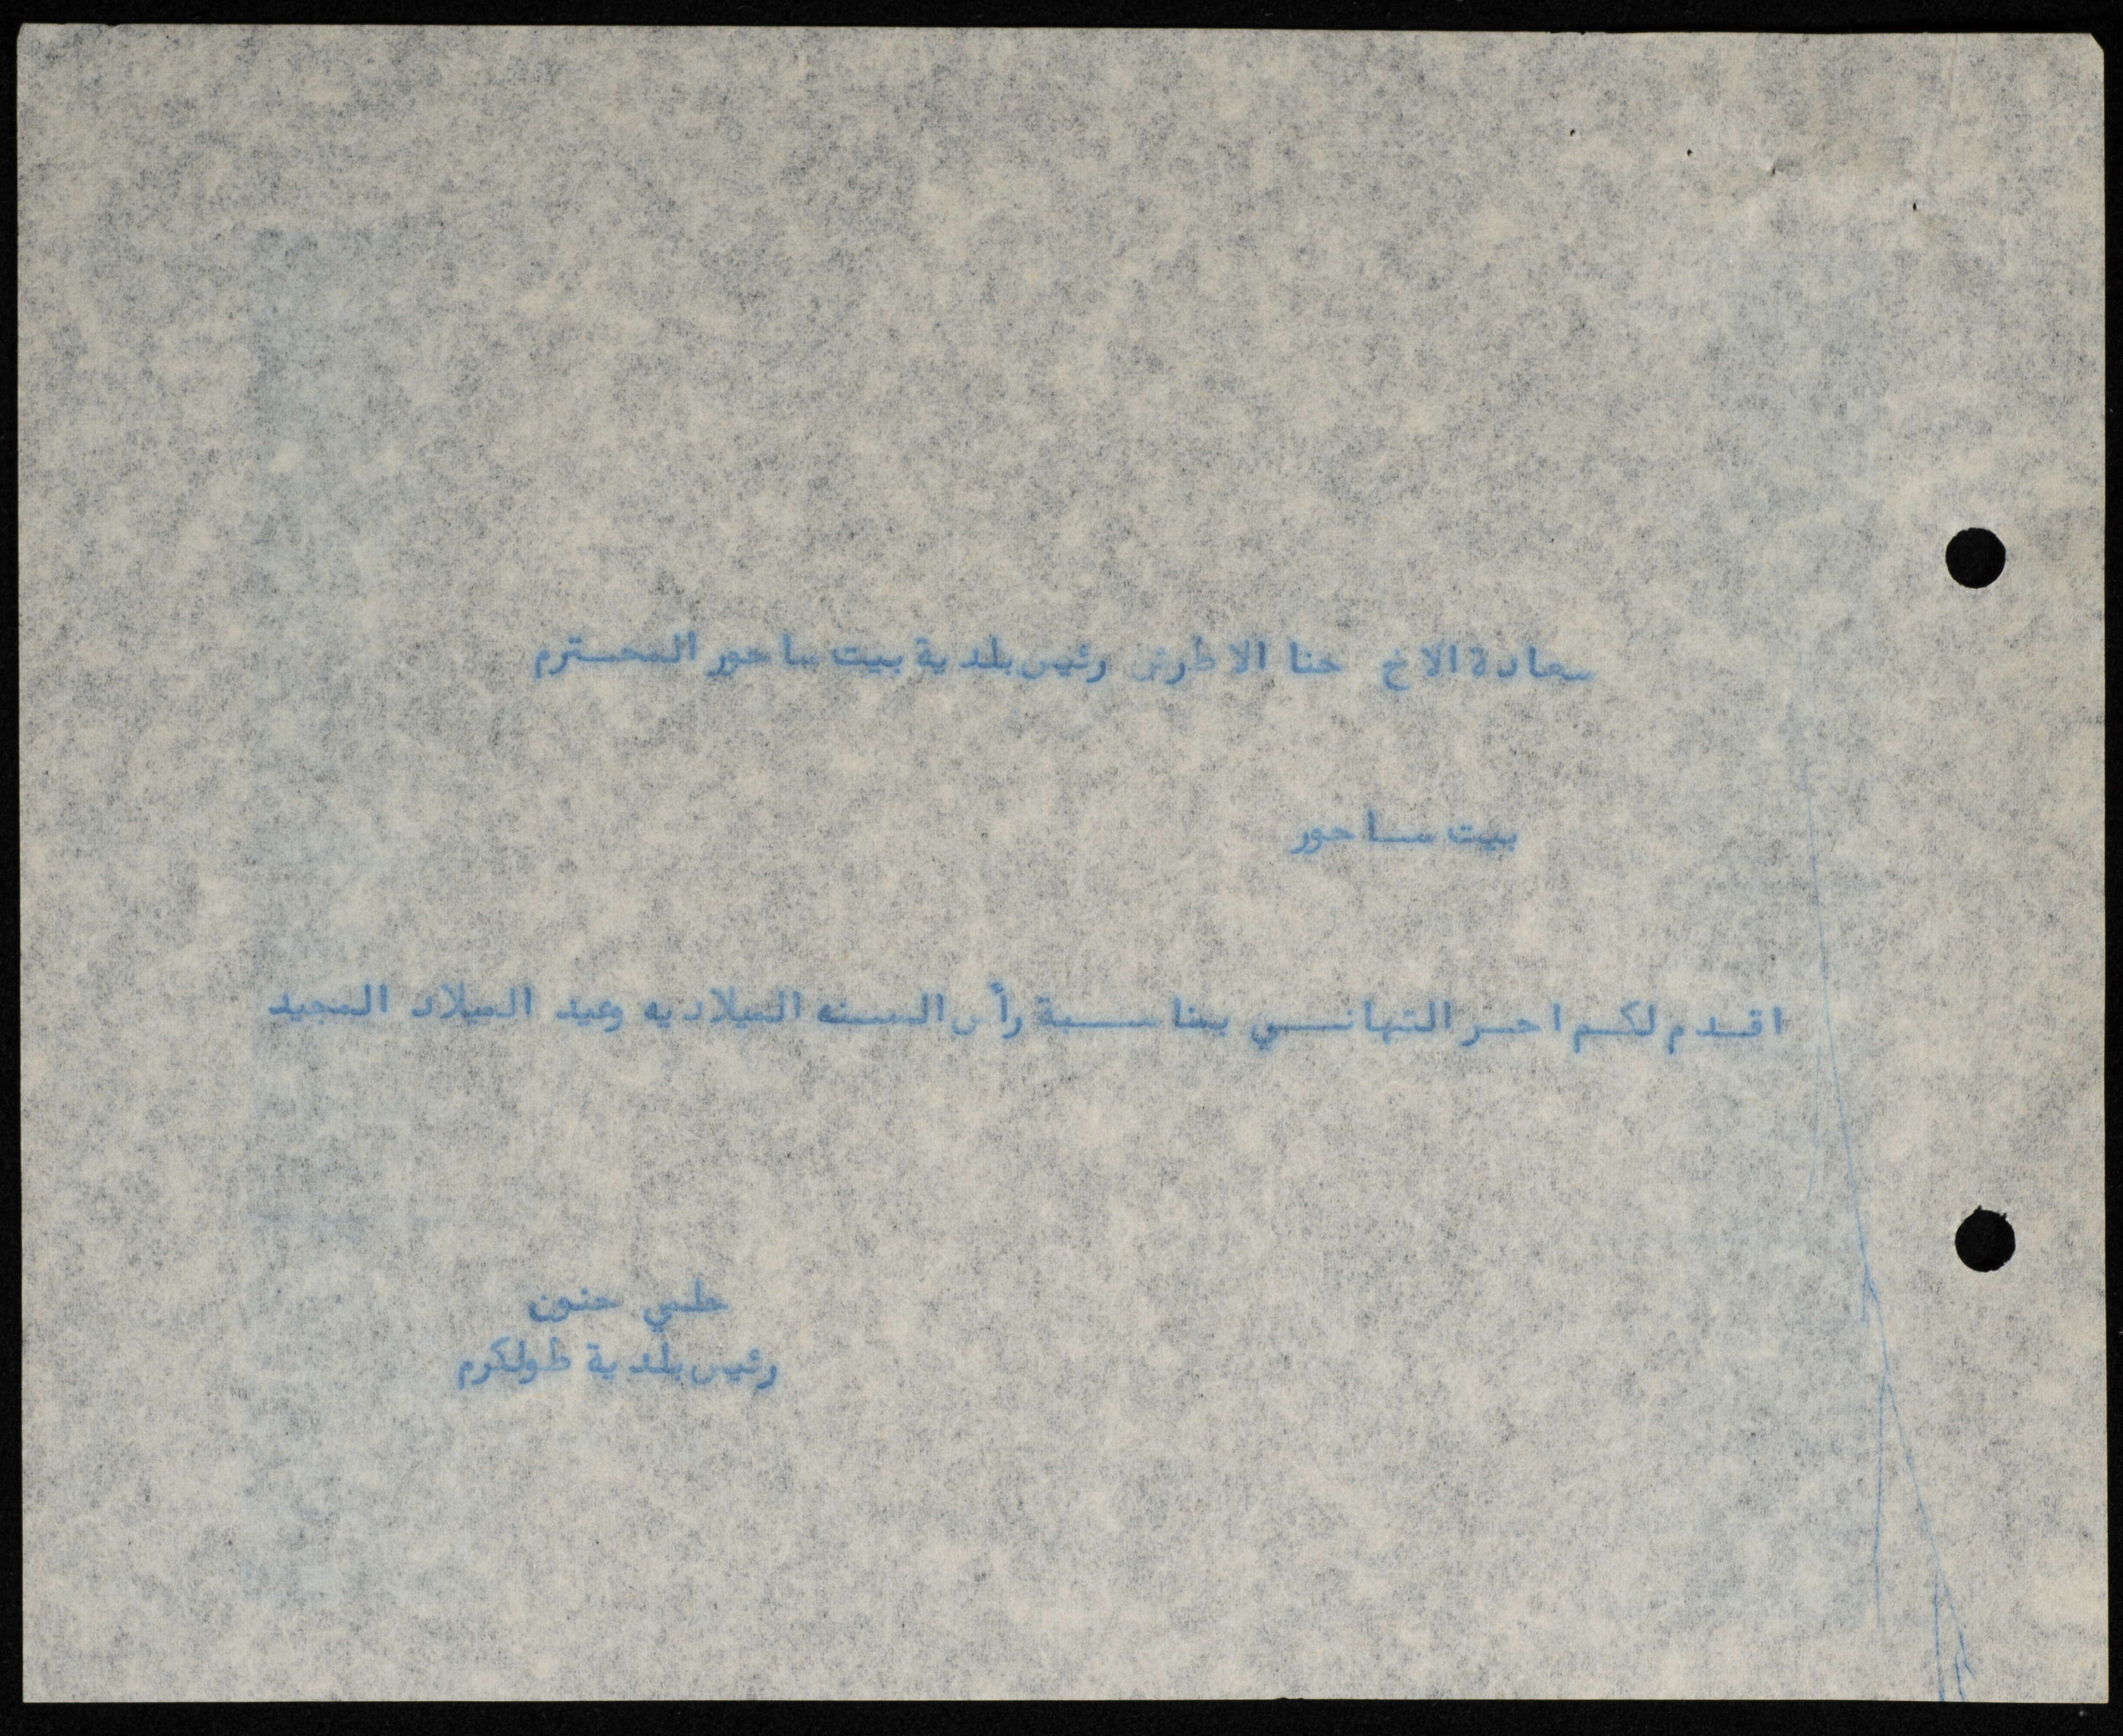 سعادة الاخ حنا الاطرش رئيس بلدية بيت ساحور المحترم
بيت ساحور
اقدم لكم احر التهاني بمناسبة رأس السنه الميلاديه وعيد الميلاد المجيد
حلمي حنون
رئيس بلدية طولكرم